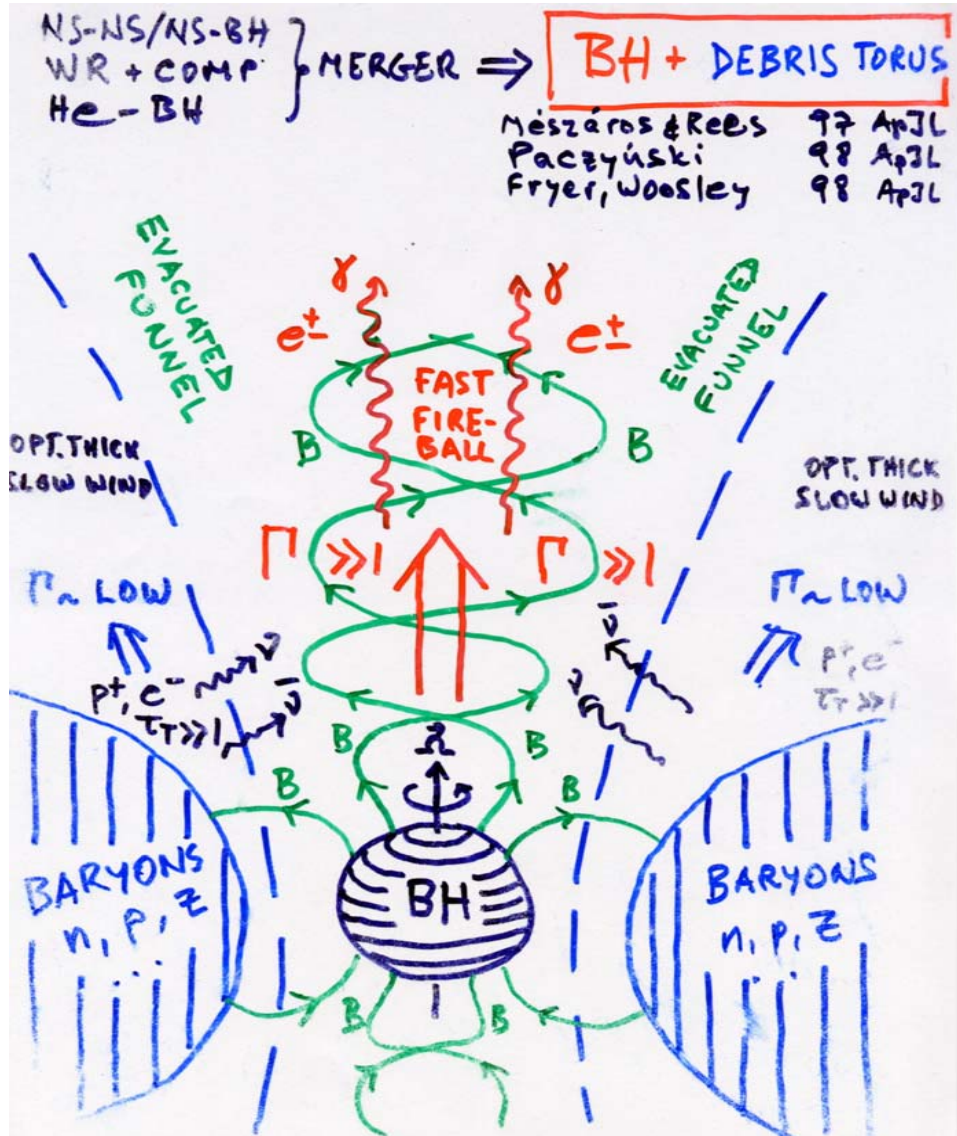 NS-NS/NS-BH
WR + COMP
He-BH
} MERGER ⇒
BH + DEBRIS TORUS
Mészáros & Rees 97 ApJL
Paczyński 98 ApJL
Fryer, Woosley 98 ApJL
EVACUATED
FUNNEL
EVACUATED
FUNNEL
γ
γ
e±
e±
FAST
FIRE-
BALL
B
B
OPT. THICK
SLOW WIND
OPT. THICK
SLOW WIND
Γ ≫1
Γ ≫1
Γ~ LOW
Γ~ LOW
p⁺, e⁻
τ_T≫1
ν
ν̄
ν̄
ν
p⁺, e⁻
τ_T≫1
B
B
Ω
B
B
BH
BARYONS
n, p, Z
...
BARYONS
n, p, Z
...
B
B